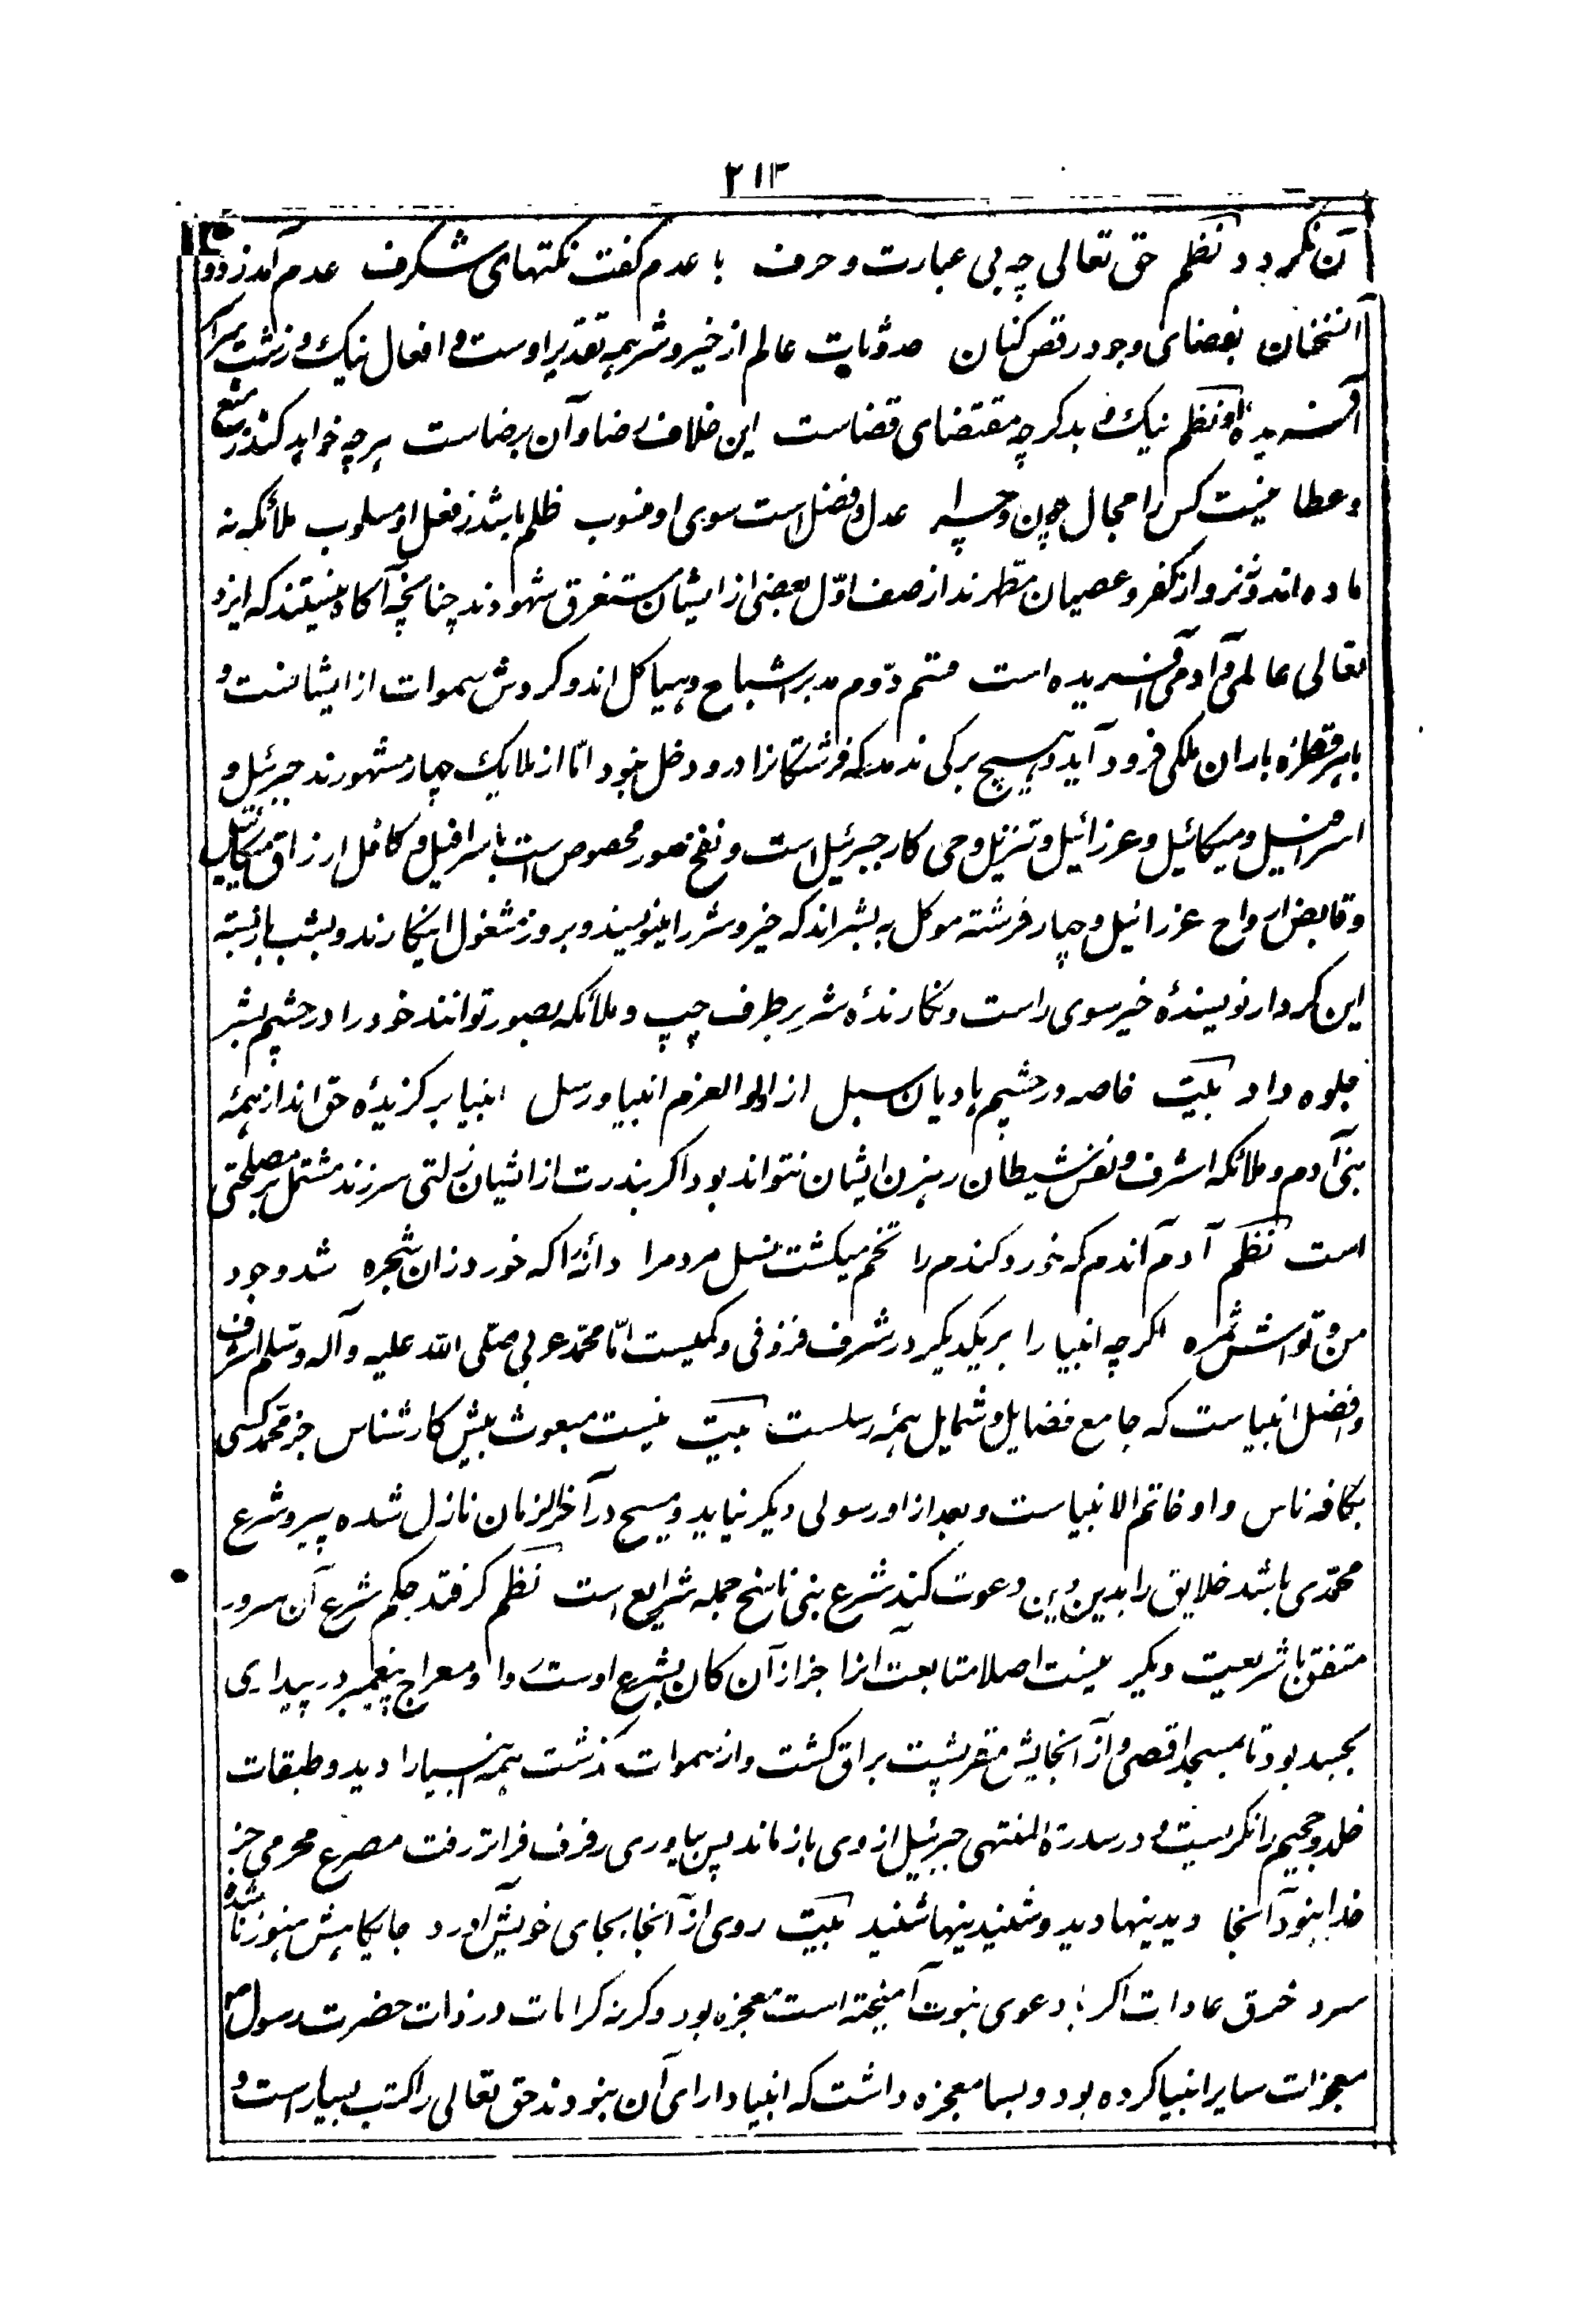 ۲۱۳
آن نگردد نظم حق تعالی چه بی عبارت و حرف با عدم گفت نکتهای شگرف عدم آمد ز ذوق
آن سخنان بفضای وجود رقص کنان حدوثات عالم از خیر و شر همه بتقدیر اوست و افعال نیک و زشت سراسر
آفریده او نظم نیک و بد گرچه مقتضای قضاست این خلاف رضا و آن برضاست هرچه خواهد کند ز منع
و عطا نیست کس را مجال چون و چرا عدل و فضل است سوی او منسوب ظلم باشد ز فعل او مسلوب ملائکه نه
ماده اند و نر و از کفر و عصیان مطهرند از صف اوّل بعضی از ایشان مستغرق شهودند چنانچه آگاه نیستند که ایزد
تعالی عالمی و آدمی آفریده است قسم دوّم مدبر اشباح و هیاکل اند و گردش سموات از ایشانست و
با هر قطره باران ملکی فرود آید و هیچ برگی ندمد که فرشتگانرا درو دخل نبود امّا از ملایک چهار مشهورند جبرئیل و
اسرافیل و میکائیل و عزرائیل و تنزیل وحی کار جبرئیل است و نفخ صور مخصوص است باسرافیل و کافل ارزاق میکائیل
و قابض ارواح عزرائیل و چهار فرشته موکل به بشر اند که خیر و شر را بنویسند و بروز مشغول اینکارند و بشب باز بسته
این کردار نویسندهٔ خیر سوی راست و نگارندهٔ شر بر طرف چپ و ملائکه بصور توانند خود را در چشم بشر
جلوه داد بیت خاصه در چشم هادیان سبل از اولوا العزم انبیا و رسل انبیا برگزیدهٔ حق اند از همهٔ
بنی آدم و ملائکه اشرف و نفس شیطان رهزن ایشان نتواند بود اگر بندرت از ایشان زلتی سرزند مشتمل بر مصلحتی
است نظم آدم آندم که خورد گندم را تخم میکشت نسل مردم را دانهٔ را که خورد زان شجره شد وجود
من و تواش ثمره اگرچه انبیا را بر یکدیگر در شرف فزونی و کمیست امّا محمّد عربی صلّی اللّه علیه و آله و سلم اشرف
و افضل انبیاست که جامع فضایل و شمایل همهٔ رسلست بیت نیست مبعوث پیش کارشناس جز محمّد کسی
بکافه ناس و او خاتم الانبیاست و بعد از او رسولی دیگر نیاید و مسیح در آخرالزمان نازل شده پیرو شرع
محمّدی باشد خلایق را بدین دین دعوت کند شرع نبی ناسخ جمله شرایع است نظم گر فتد حکم شرع آن سرور
متفق با شریعت دیگر نیست اصلا متابعت آنرا جز از آن کان بشرع اوست روا و معراج پیغمبر در بیداری
بجسد بود تا بمسجد اقصی و از آنجا بشه متقر پشت براق گشت و از سموات گذشت همه انبیا را دید و طبقات
خلد و جحیم را نگریست و در سدرة المنتهی جبرئیل از وی باز ماند پس بیاوری رفرف فراتر رفت مصرع محرمی جز
خدا نبود آنجا دیدنیها دید و شنیدنیها شنید بیت روی از آنجا بجای خویش آورد جایگاهش هنوز ناشده
سرد خرق عادات اگر با دعوی نبوت آمیخته است معجزه بود و گرنه کرامات در ذات حضرت رسول ص
معجزات سایر انبیا کرده بود و بسا معجزه داشت که انبیا دارای آن نبودند حق تعالی را کتب بسیار است و